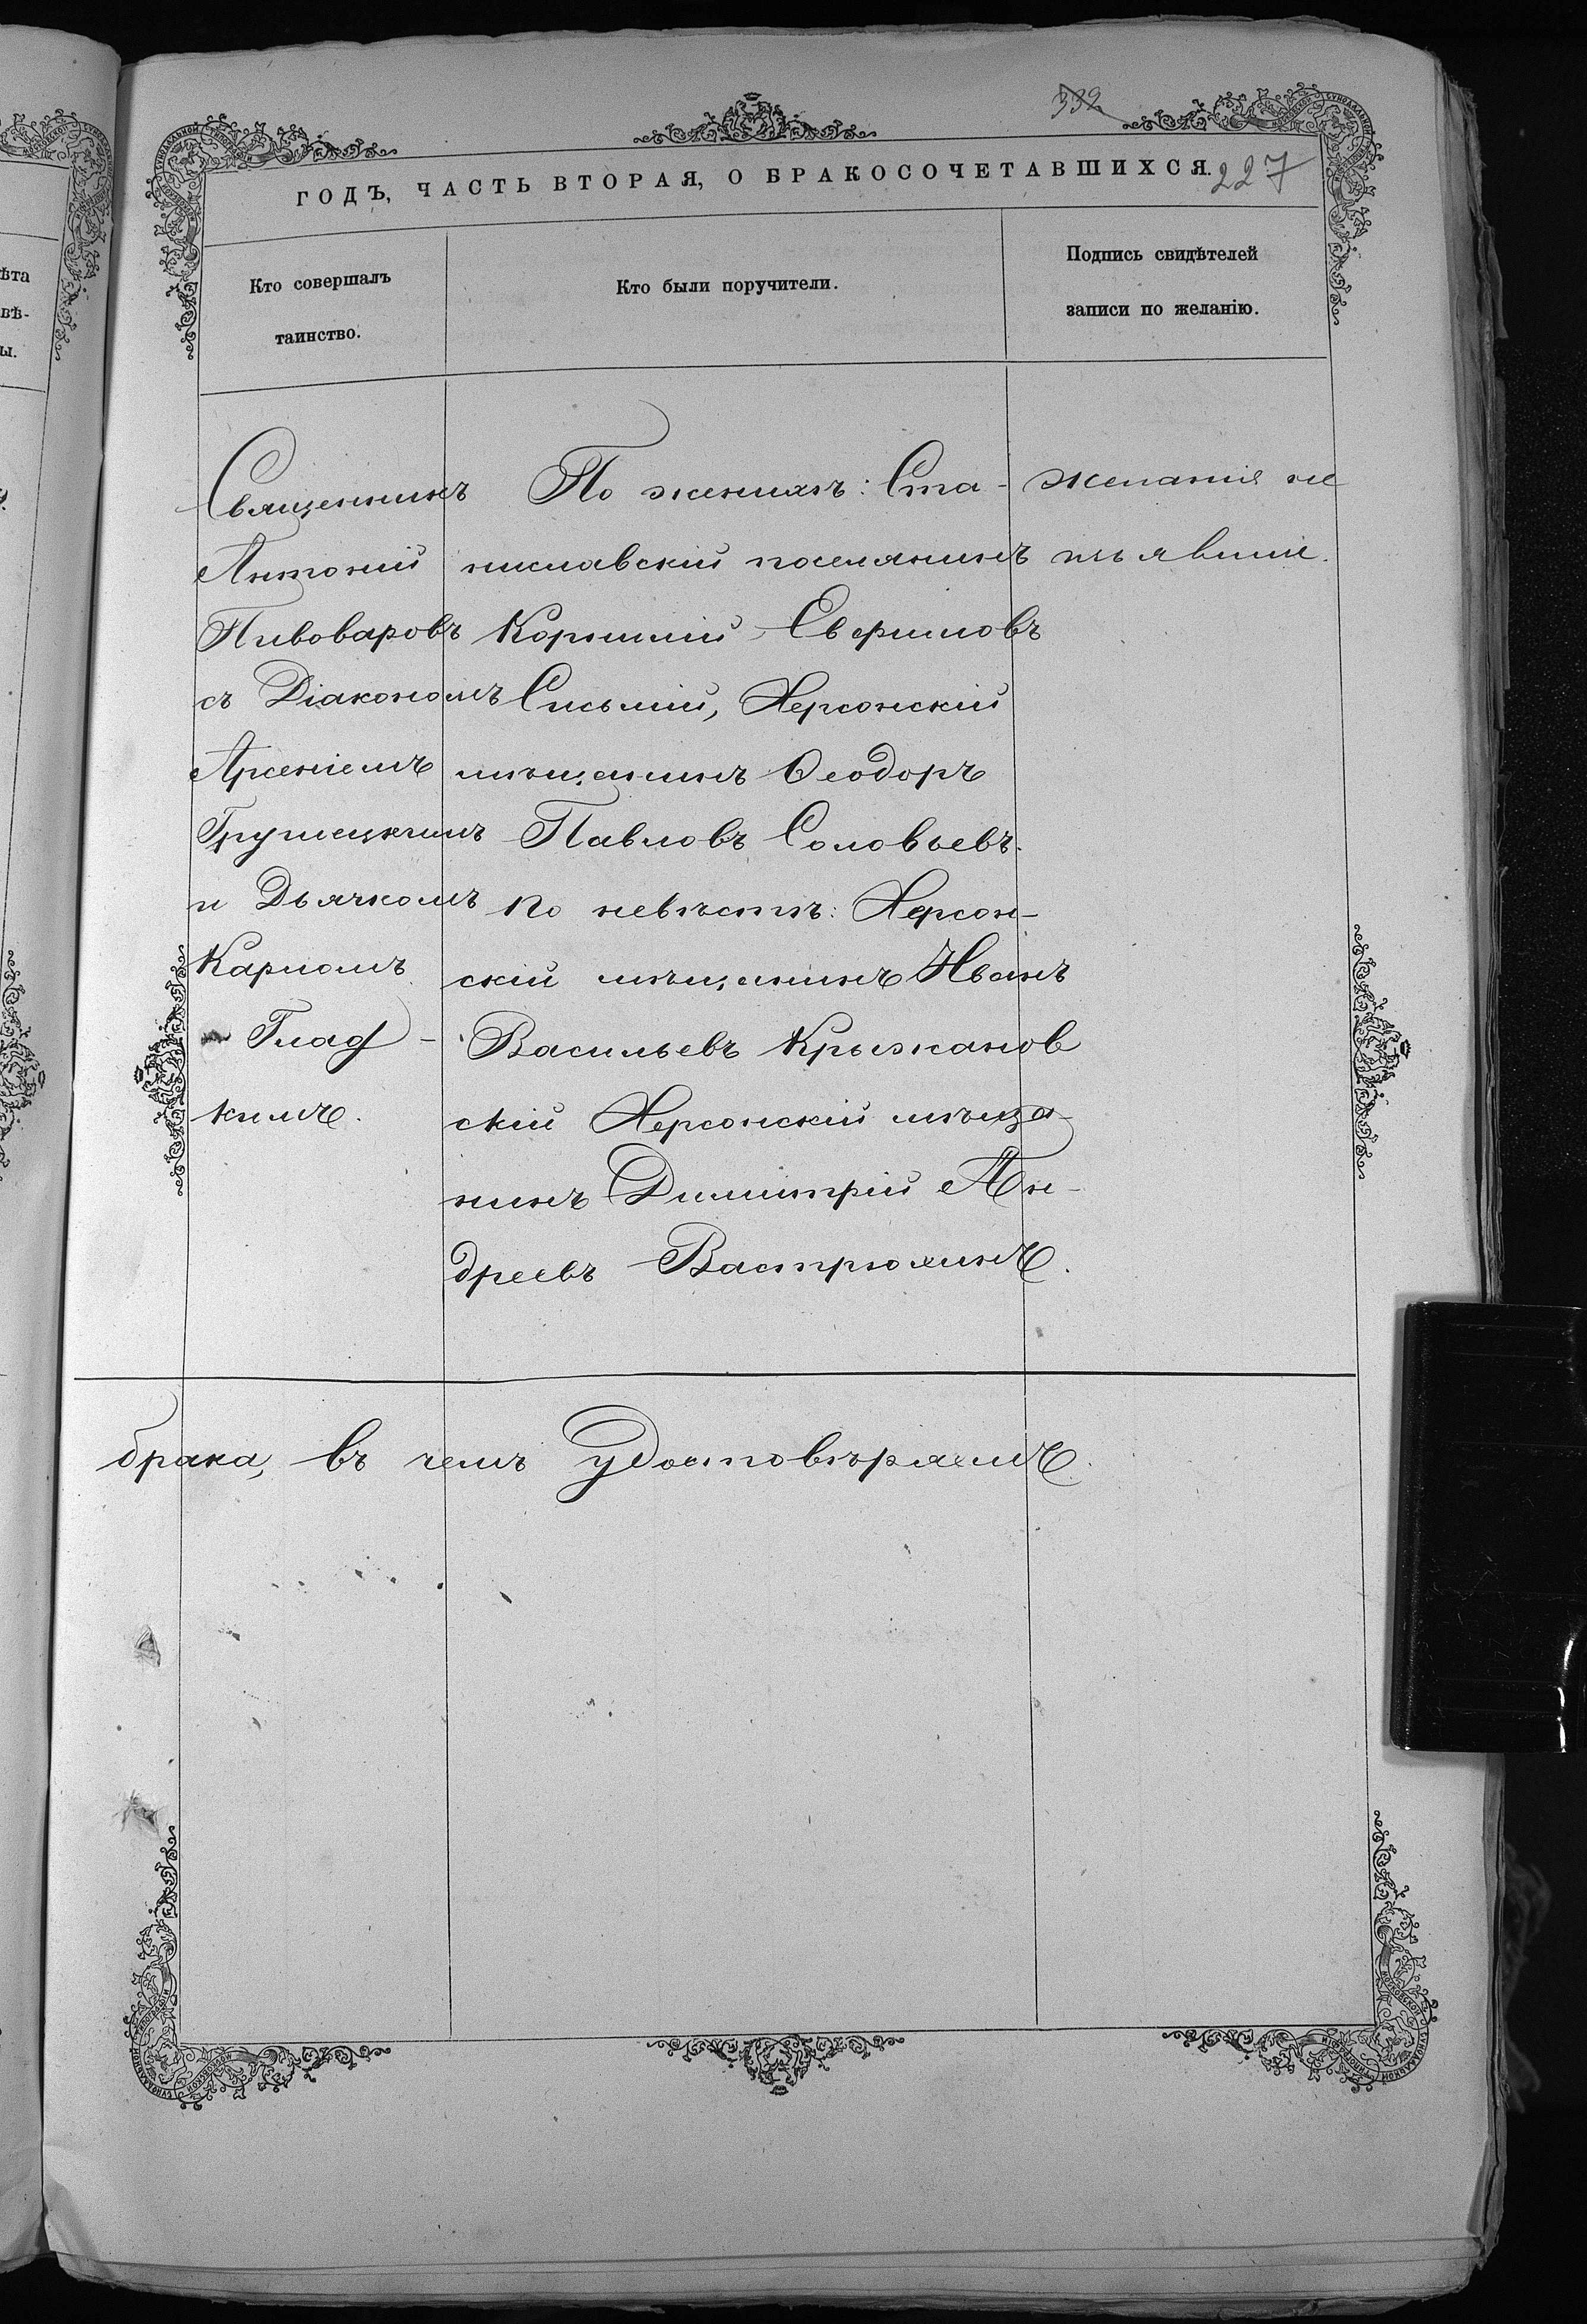 332
ГОДЪ, ЧАСТЬ ВТОРАЯ, О БРАКОСОЧЕТАВШИХСЯ. 227
Кто совершалъ
таинство.
Кто были поручители.
Подпись свидѣтелей
записи по желанію.
Священникъ
Антоній
Пивоваровъ
съ Діакономъ
Арсеніемъ
Грушецкимъ
и Дьячкомъ
Карпомъ
Глад-
кимъ.
По женихѣ: Ста-
ниславскій поселянинъ
Корнилій Евфимовъ
Херсонскій
мѣщанинъ Ѳеодоръ
Павловъ Соловьевъ.
по невѣстѣ: Херсон-
скій мѣщанинъ Иванъ
Васильевъ Крыжанов
скій Херсонскій мѣща-
нинъ Димитрій Ан-
дреевъ Вастрюхинъ.
желанія не
изъявили.
брака, въ чемъ удостовѣряемъ.
ѣта
вѣ-
ы.